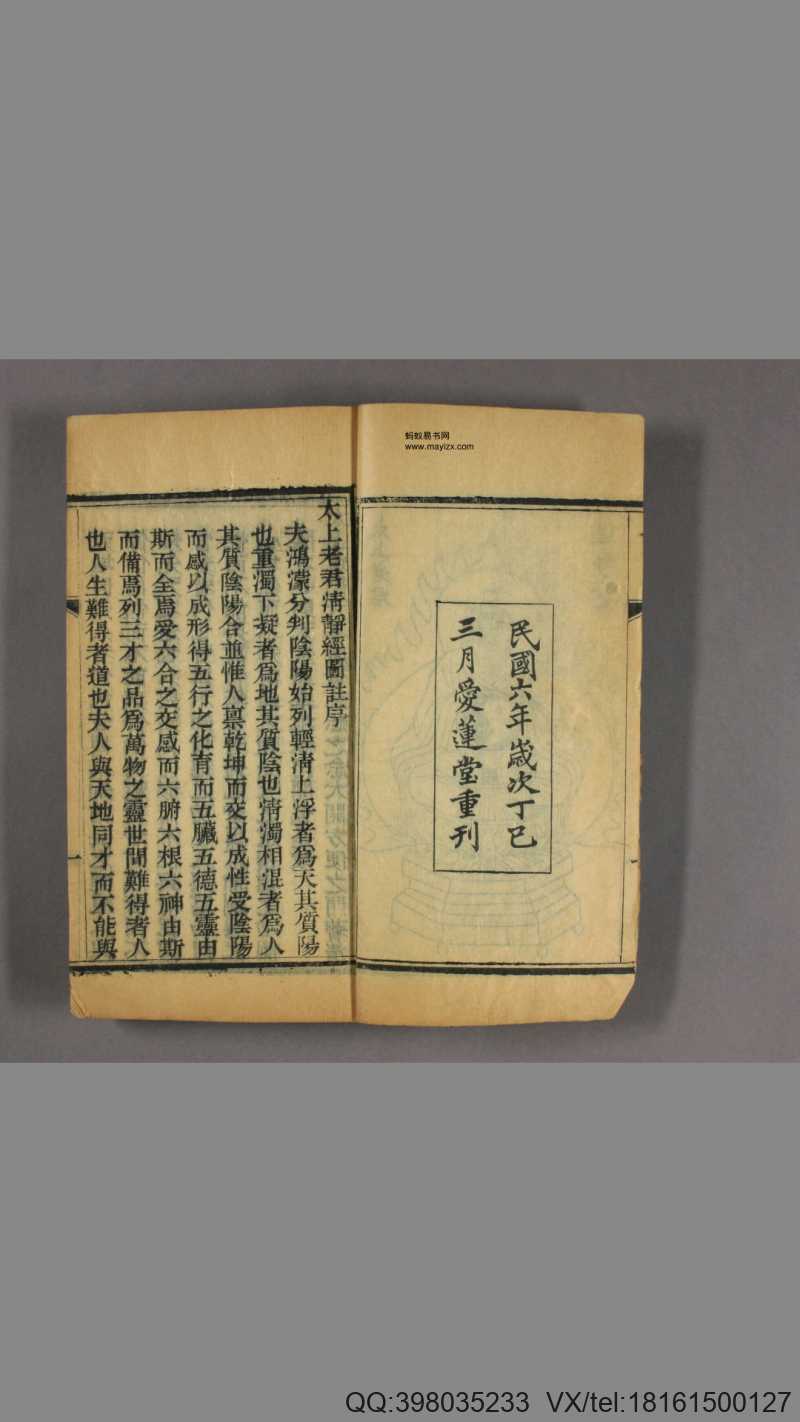 蚂蚁易书网
www.mayizx.com
民國六年歲次丁巳
三月愛蓮堂重刊
太上老君清靜經圖註序
夫鴻濛分判陰陽始列輕清上浮者爲天其質陽
也重濁下凝者爲地其質陰也清濁相混者爲人
其質陰陽合並惟人禀乾坤而交以成性受陰陽
而感以成形得五行之化育而五臟五德五靈由
斯而全焉愛六合之交感而六腑六根六神由斯
而備焉列三才之品爲萬物之靈世間難得者人
也人生難得者道也夫人與天地同才而不能與
一
QQ:398035233 VX/tel:18161500127